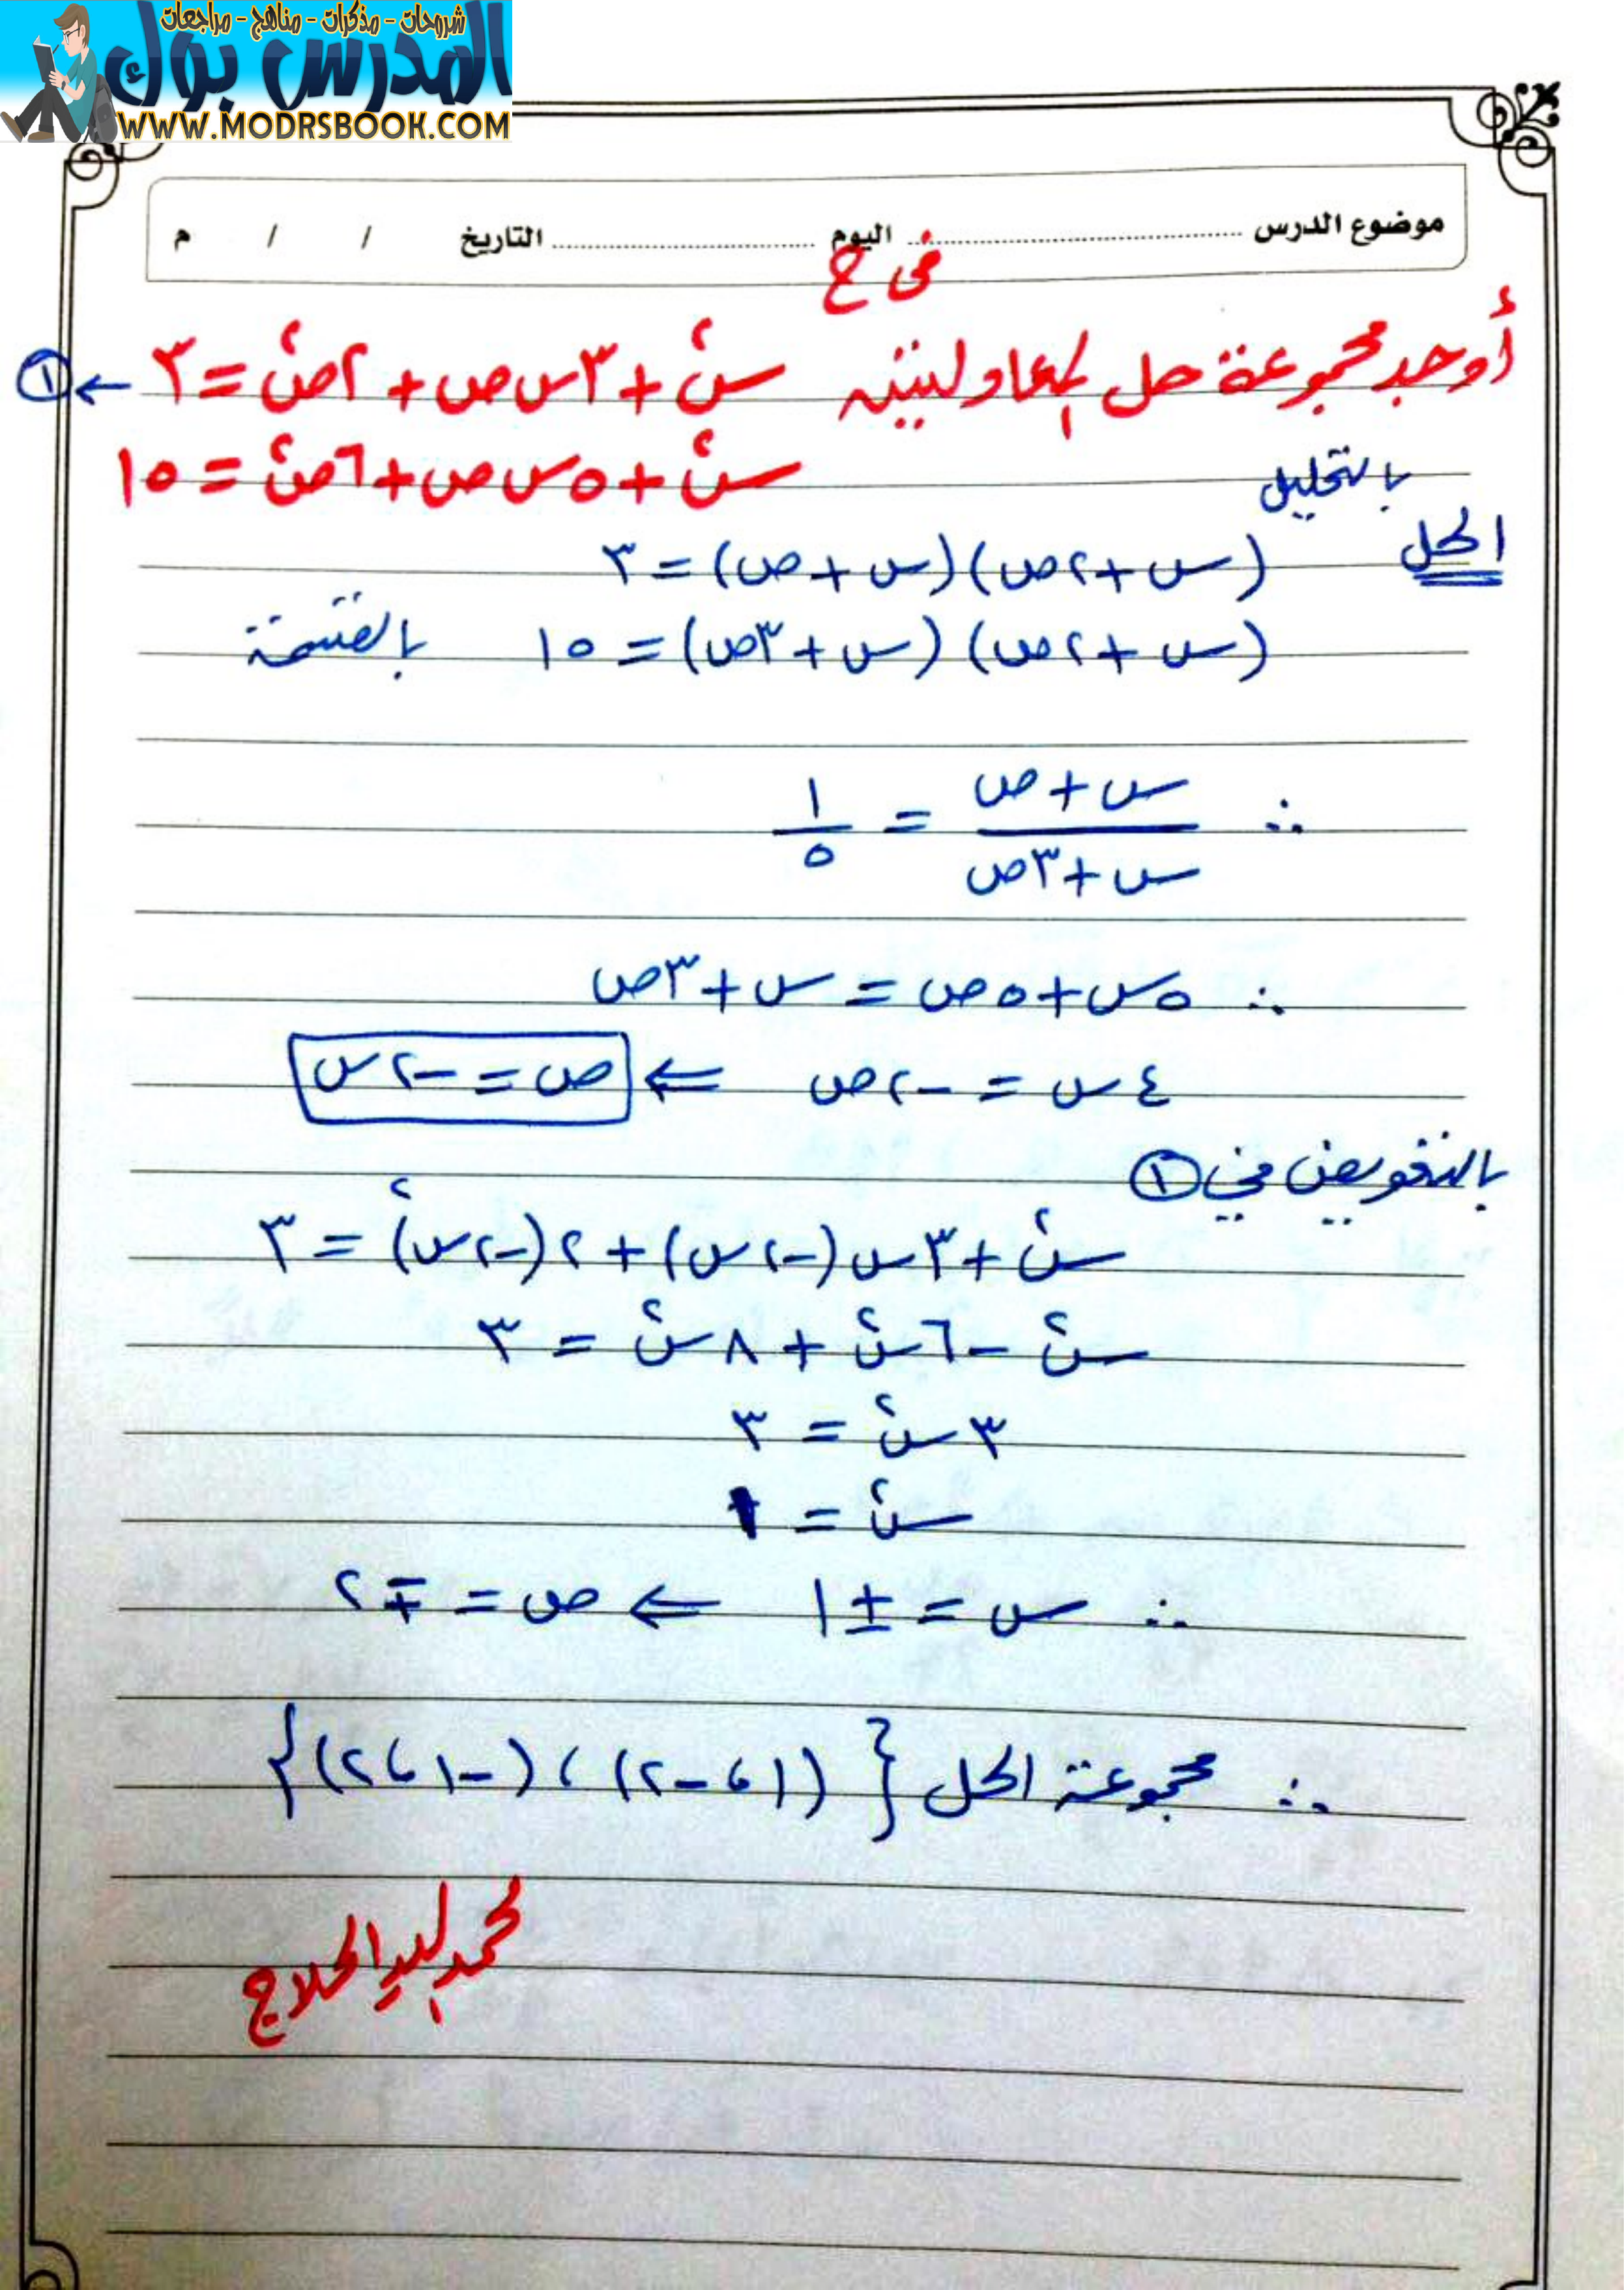 شروحات - مذكرات - مناهج - مراجعات
المدرس بوك
WWW.MODRSBOOK.COM
موضوع الدرس ........ اليوم ........ التاريخ / / م
فى ح
أوجد مجموعة حل المعادلتين س² + ٣س ص + ٢ص² = ٣ ← ①
س² + ٥س ص + ٦ص² = ١٥
بالتحليل
الحل
(س + ٢ص)(س + ص) = ٣
(س + ٢ص)(س + ٣ص) = ١٥ بالقسمة
∴ (س + ص)/(س + ٣ص) = ١/٥
∴ ٥س + ٥ص = س + ٣ص
٤س = -٢ص ⇐ ص = -٢س
بالتعويض في ①
س² + ٣س(-٢س) + ٢(-٢س)² = ٣
س² - ٦س² + ٨س² = ٣
٣س² = ٣
س² = ١
∴ س = ±١ ⇐ ص = ∓٢
∴ مجموعة الحل {(١، -٢)، (-١، ٢)}
محمد السيد الحلاج